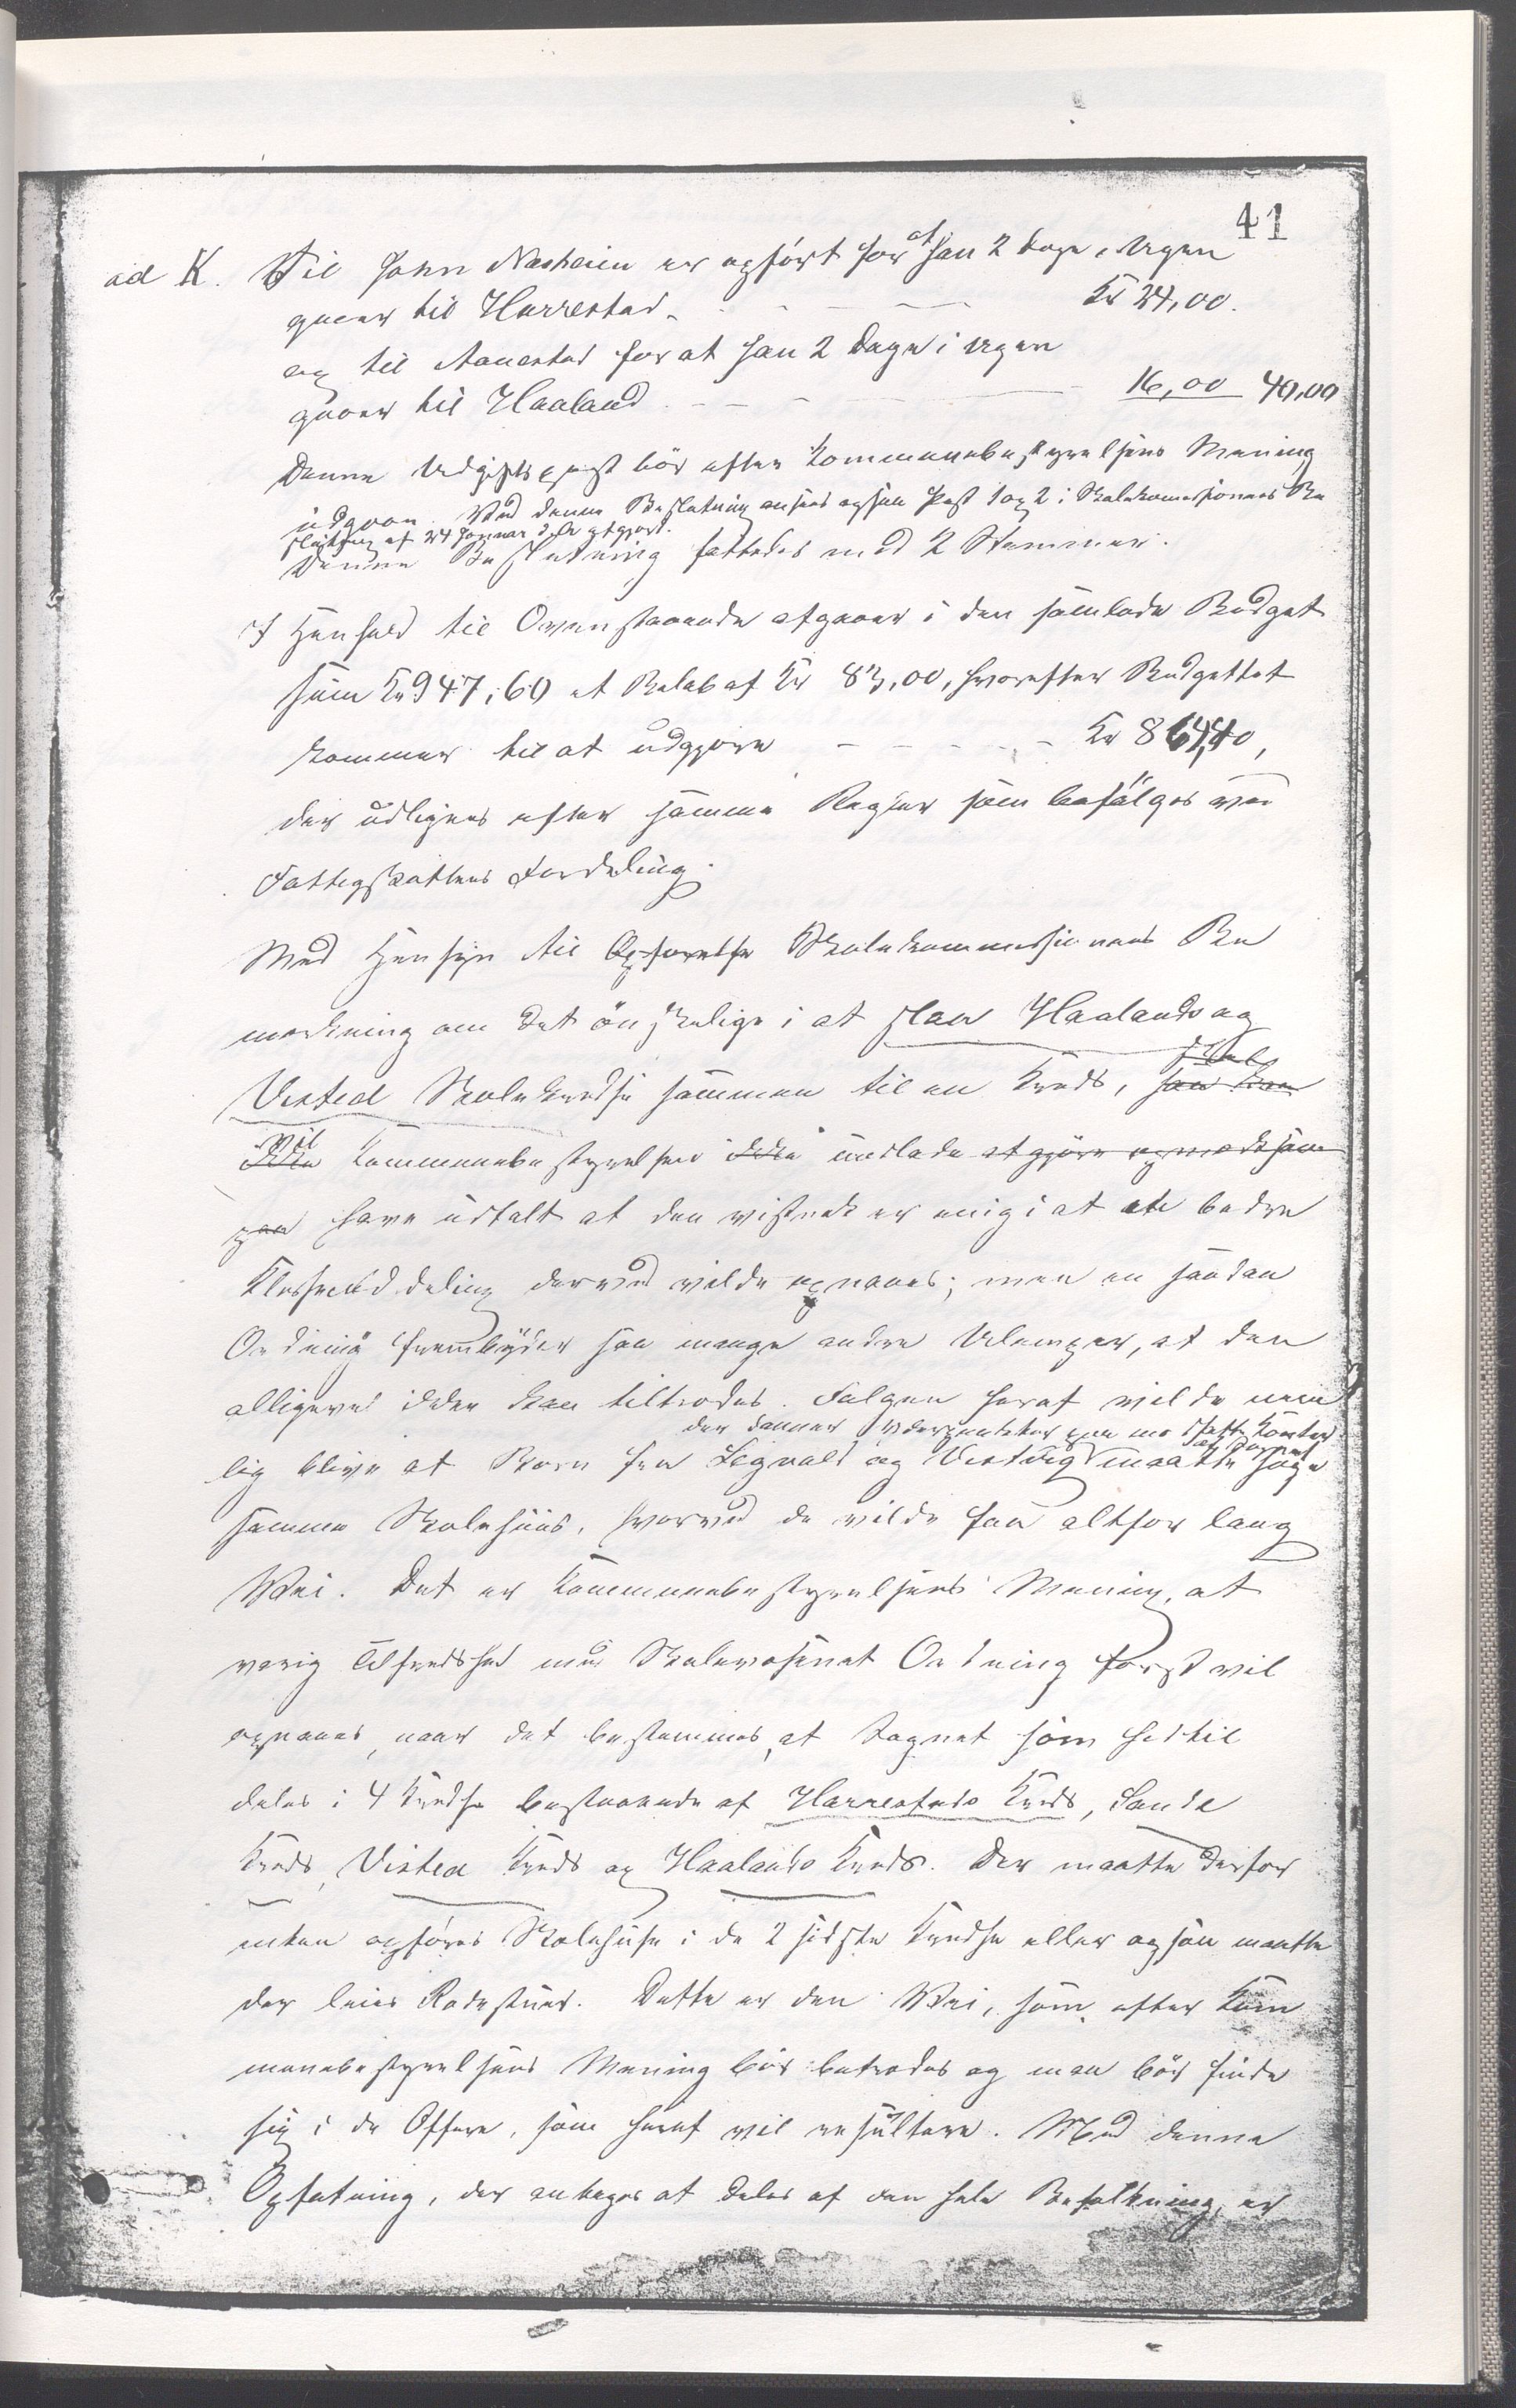 41
ad K. Til John Nasheim er opført for at han 2 Dage i Ugen
gaaer til Harrestad Kr 24,00.
og til Aanestad for at han 2 Dage i Ugen
gaaer til Haaland 16,00 40,00
Denne Udgiftspost bör efter Kommunebestyrelsens Mening
udgaa. Ved denne Beslutning ansees ogsaa Post 1 og 2 i Skolekommissionens Be
slutning af 24 Januar d.A. afgjort.
Denne Beslutning fattedes med 2 Stemmer.
I Henhold til Ovenstaaende afgaaer i den samlede Budget
sum Kr 947,60 et Beløb af Kr 83,00, hvorefter Budgettet
kommer til at udgjøre Kr 864,60,
der udlignes efter samme Regler som befølges ved
Fattigskattens Fordeling.
Med Hensyn til Skolekommissionens Be
mærkning om det ønskelige i at slaa Haalands og
Visted Skolekredse sammen til en Kreds, skal
Kommunebestyrelsen ikke undlade at gjøre opmærksom
paa have udtalt at den vistnok er enig i at en bedre
Klasseinddeling derved vilde opnaaes; men en saadan
Ordning frembyder saa mange andre Ulemper, at den
alligevel ikke kan tiltrædes. Følgen heraf vilde nem
der danner Yderpunkter paa modsatte Kanter
af Sognet
lig blive at Børn fra Legvold og Vestvig maatte søge
samme Skolehuus, hvorved de vilde faa altfor lang
Vei. Det er Kommunebestyrelsens Mening, at
varig Tilfredshed med Skolevæsenet Ordning først vil
opnaaes, naar det bestemmes, at Sognet som hidtil
deles i 4 Kredse bestaaende af Harrestads Kreds, Sande
Kreds, Visted Kreds og Haalands Kreds. Der maatte derfor
enten opføres Skolehuse i de 2 sidste Kredse eller ogsaa maatte
der leies Rodestuer. Dette er den Vei, som efter Kom
munebestyrelsens Mening bör betrædes og man bör finde
sig i de Offere, som heraf vil resultere. Med denne
Opfatning, der antages at deles af den hele Befolkning, er